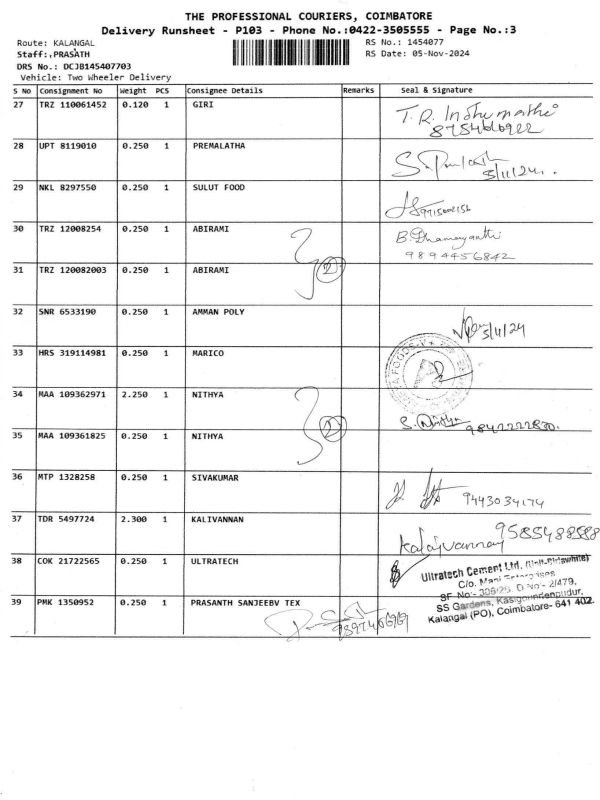 THE PROFESSIONAL COURIERS, COIMBATORE
Delivery Runsheet - P103 - Phone No.:0422-3505555 - Page No.:3
Route: KALANGAL RS No.: 1454077
Staff:,PRASATH RS Date: 05-Nov-2024
DRS No.: DCJB145407703
Vehicle: Two Wheeler Delivery
S No Consignment No Weight PCS Consignee Details Remarks Seal & Signature
27 TRZ 110061452 0.120 1 GIRI T. R. Indhumathi
28 UPT 8119010 0.250 1 PREMALATHA 5/11/24.
29 NKL 8297550 0.250 1 SULUT FOOD
30 TRZ 12008254 0.250 1 ABIRAMI B. Dhamayanthi
9894456842
31 TRZ 120082003 0.250 1 ABIRAMI 2
32 SNR 6533190 0.250 1 AMMAN POLY 5/11/24
33 HRS 319114981 0.250 1 MARICO
34 MAA 109362971 2.250 1 NITHYA S. Nithya 9842222830.
35 MAA 109361825 0.250 1 NITHYA 2
36 MTP 1328258 0.250 1 SIVAKUMAR 9443034174
37 TDR 5497724 2.300 1 KALIVANNAN 9585488588
Kalaivannan
38 COK 21722565 0.250 1 ULTRATECH Ultratech Cement Ltd.
C/o. Mani Enterprises
SF No:- 306/25. D No - 2/479,
SS Gardens,
Kalangal (PO), Coimbatore- 641 402.
39 PMK 1350952 0.250 1 PRASANTH SANJEEBV TEX